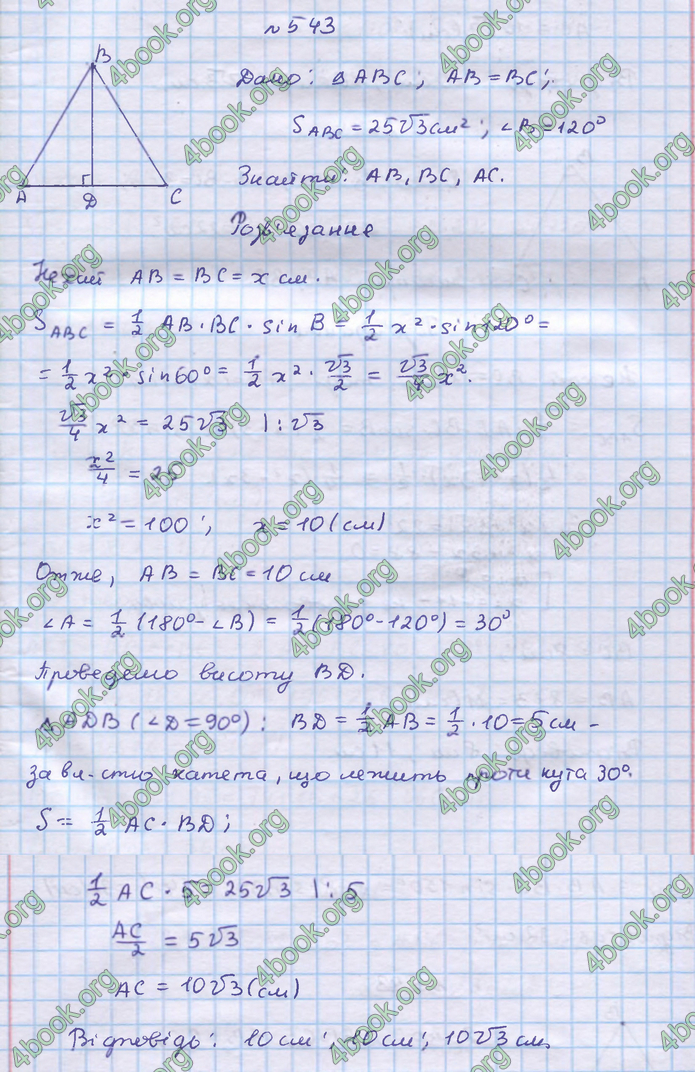 №543
B
A
D
C
Дано: △ABC; AB=BC;
S_ABC = 25√3 см²; ∠B=120°
Знайти: AB, BC, AC.
Розв'язання
Нехай AB = BC = x см.
S_ABC = 1/2 AB·BC·sin B = 1/2 x²·sin120° =
= 1/2 x²·sin60° = 1/2 x²·√3/2 = √3/4 x².
√3/4 x² = 25√3 |:√3
x²/4 = 25
x² = 100; x = 10 (см)
Отже, AB = BC = 10 см
∠A = 1/2 (180°-∠B) = 1/2 (180°-120°) = 30°
Проведемо висоту BD.
△ADB (∠D=90°): BD = 1/2 AB = 1/2·10 = 5 см –
за вл-стю катета, що лежить проти кута 30°.
S = 1/2 AC·BD;
1/2 AC·5 = 25√3 |:5
AC/2 = 5√3
AC = 10√3 (см)
Відповідь: 10 см; 10 см; 10√3 см.
4book.org